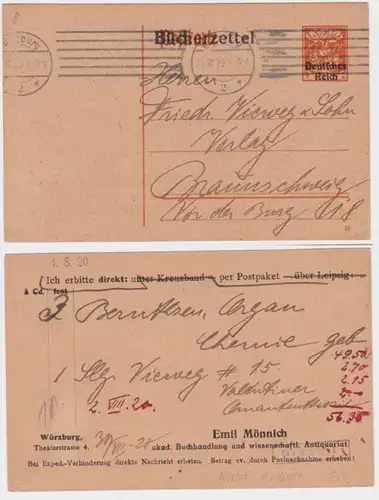 Bücherzettel
Deutsches
Reich
Herren
Friedr. Vieweg & Sohn
Verlag
Braunschweig
Vor der Burg 18
1. 8. 20
Ich erbitte direkt: unter Kreuzband – per Postpaket – über Leipzig:
à Cd. fest
3 Bernthsen, Organ
Chemie geb
49.50
2.70
1 Slg Vieweg # 15
2.15
Valentiner
2. VIII. 20.
56.35
Würzburg,
Emil Mönnich
Theaterstrasse 4.
30/VII-20
akad. Buchhandlung und wissenschaftl. Antiquariat.
Bei Exped.-Verhinderung direkte Nachricht erbeten. Betrag ev. durch Postnachnahme erheben!